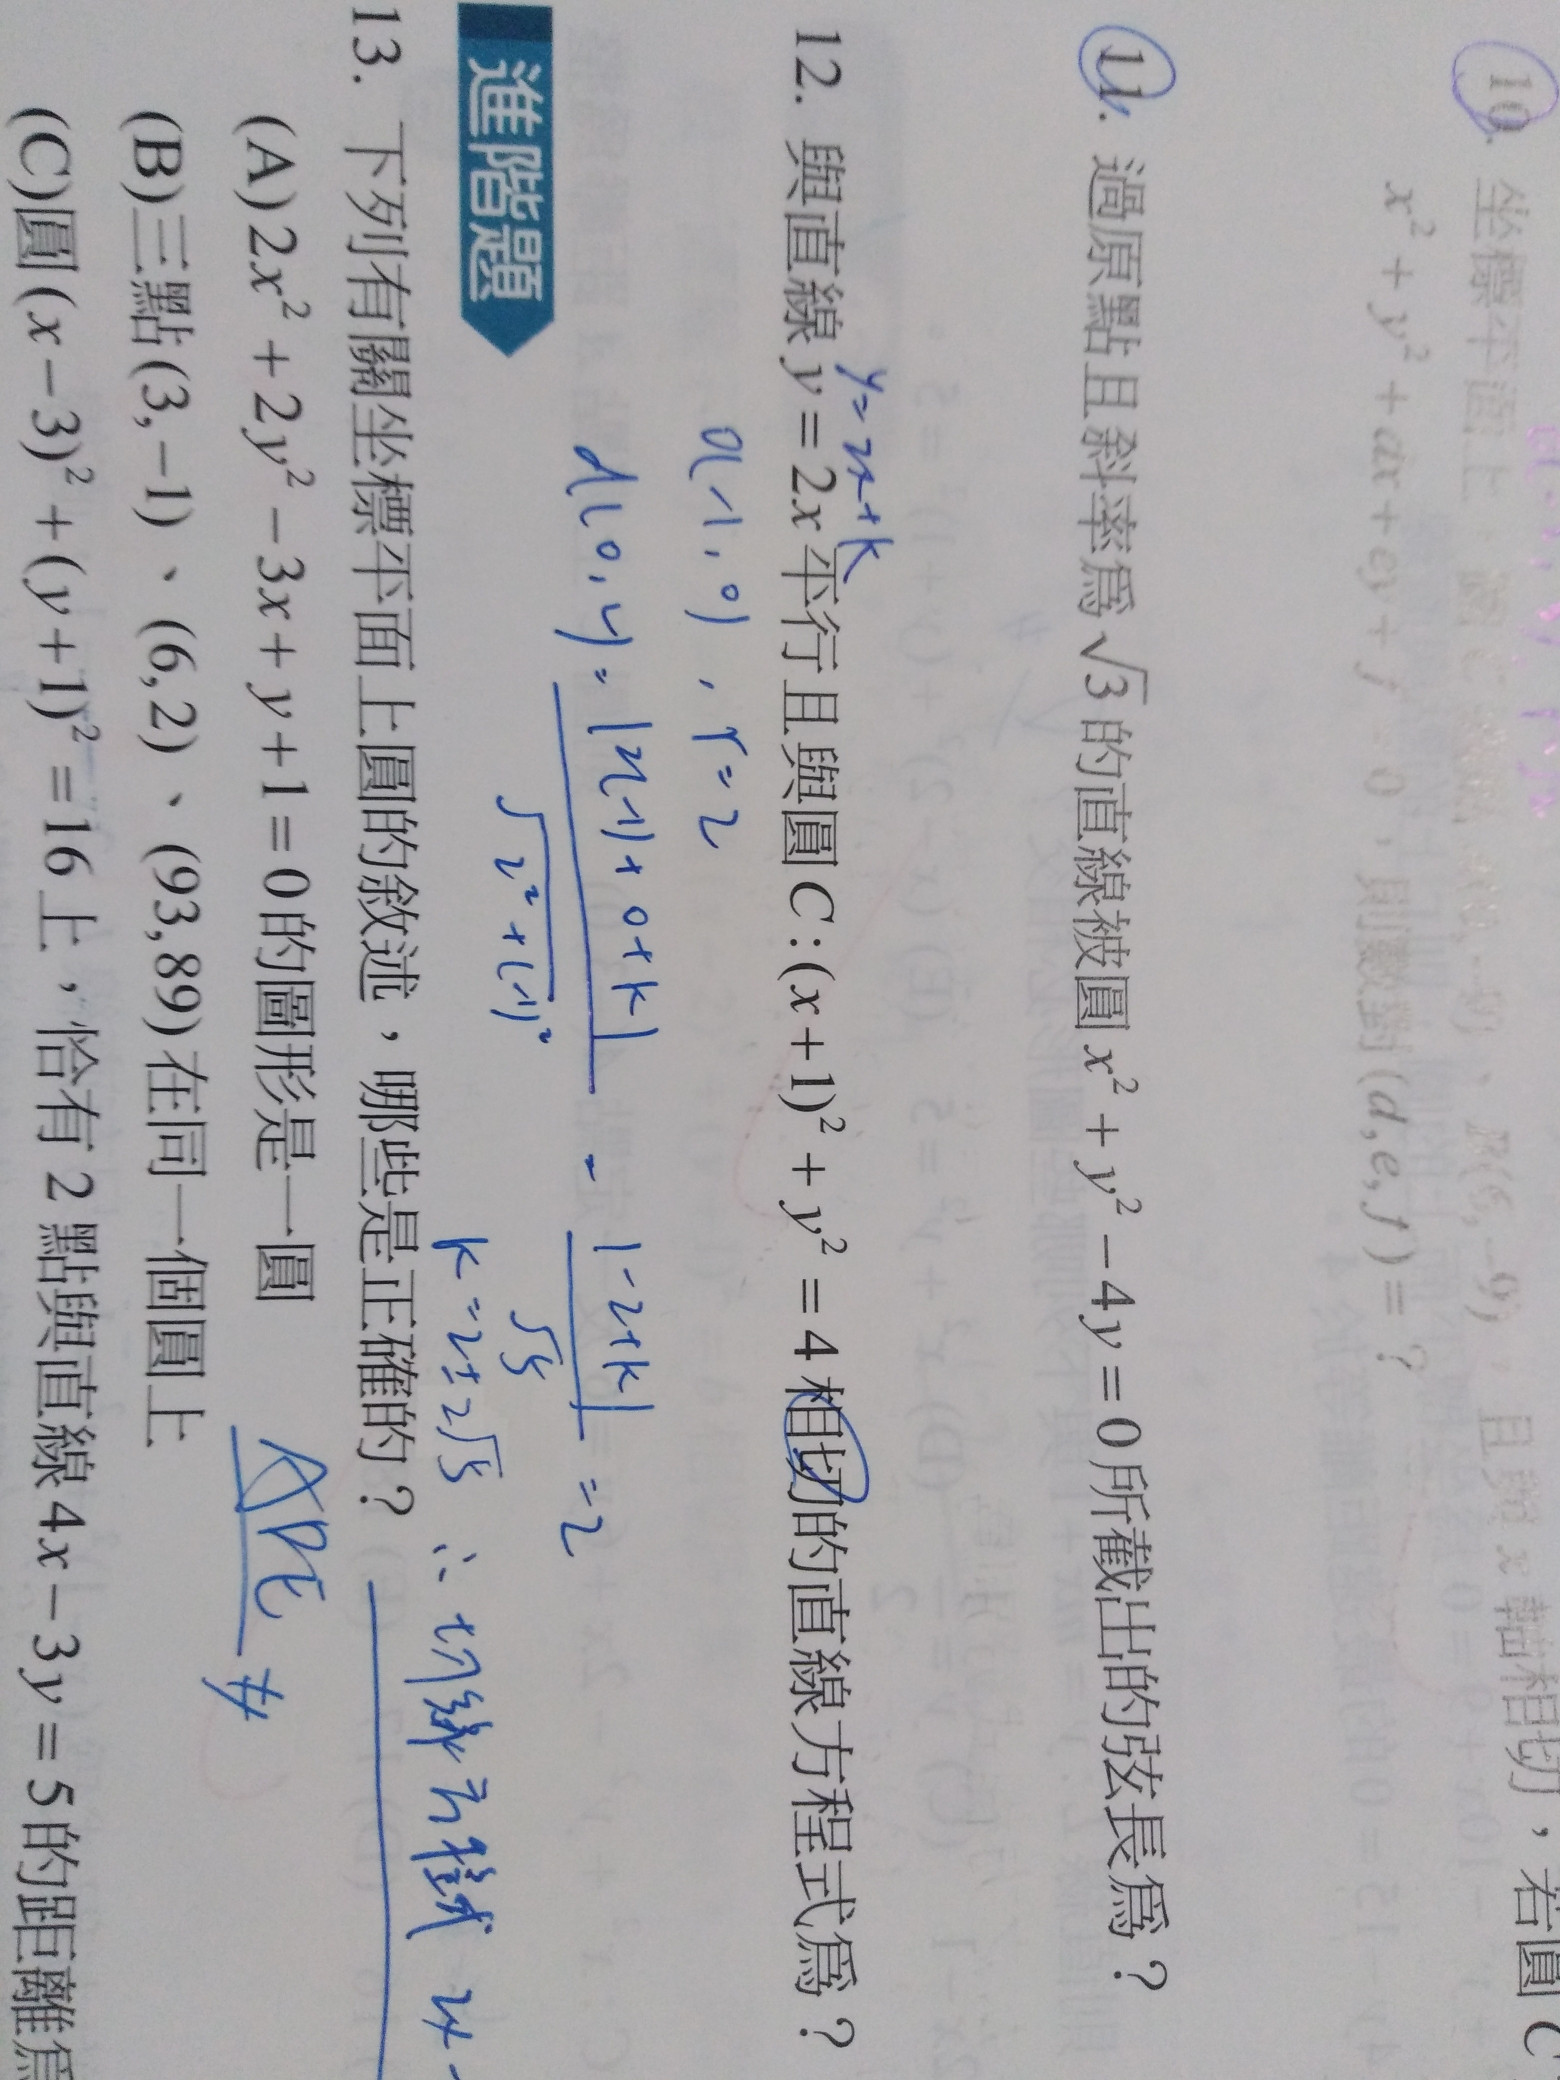 10. 坐標平面上,圓C 且與x軸相切,若圓C
x² + y² + dx + ey + f = 0,則數對(d,e,f) = ?
11. 過原點且斜率為√3的直線被圓x² + y² − 4y = 0所截出的弦長為?
y=2x+k
12. 與直線y = 2x平行且與圓C:(x+1)² + y² = 4相切的直線方程式為?
O(-1,0), r=2
d(O,L) = |2(-1)+0+k| / √(2²+(-1)²) = |-2+k| / √5 = 2
k=2±2√5 ∴切線方程式 2x-
進階題
13. 下列有關坐標平面上圓的敘述,哪些是正確的?
(A)2x² + 2y² − 3x + y + 1 = 0的圖形是一圓
ADE #
(B)三點(3,−1)、(6,2)、(93,89)在同一個圓上
(C)圓(x−3)² + (y+1)² = 16上,恰有2點與直線4x − 3y = 5的距離為